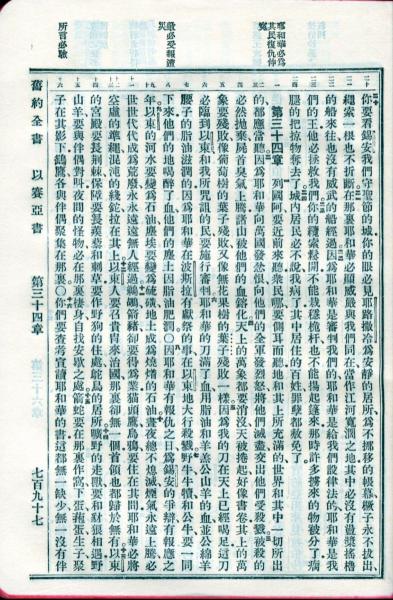 耶和華必為
其民復仇伸
冤
敵必受報遭
災
所言必驗
你要看錫安我們守聖節的城你的眼必見耶路撒冷爲安靜的居所爲不挪移的帳幕橛子永不拔出
繩索一根也不折斷在那裏耶和華必顯威嚴與我們同在當作江河寬濶之地其中必沒有盪槳搖櫓
的船來往也沒有威武的船經過因爲耶和華是審判我們的耶和華是給我們設律法的耶和華是我
們的王他必拯救我們你的繩索鬆開不能栽穩桅杆也不能揚起篷來那時許多擄來的物被分了瘸
腿的把掠物奪去了城內居民必不說我病了其中居住的百姓罪孽都赦免了
第三十四章 列國阿要近前來聽衆民哪要側耳而聽地和其上所充滿的世界和其中一切所出
的都應當聽因爲耶和華向萬國發忿恨向他們的全軍發烈怒將他們滅盡交出他們受殺戮被殺的
必然抛棄屍首臭氣上騰諸山被他們的血鎔化天上的萬象都要消沒天被捲起好像書卷其上的萬
象要殘敗像葡萄樹的葉子殘敗又像無花果樹的葉子殘敗一樣因爲我的刀在天上已經喝足這刀
必臨到以東和我所咒詛的民要施行審判耶和華的刀滿了血用脂油和羊羔公山羊的血並公綿羊
腰子的脂油滋潤的因爲耶和華在波斯拉有獻祭的事在以東地大行殺戮野牛牛犢和公牛要一同
下來他們的地喝醉了血他們的塵土因脂油肥潤〇因耶和華有報仇之日爲錫安的爭辯有報應之
年以東的河水要變爲石油塵埃要變爲硫磺地土成爲燒着的石油晝夜總不熄滅煙氣永遠上騰必
世世代代成爲荒廢永永遠遠無人經過鵜鶘箭豬卻要得爲業貓頭鷹烏鴉要住在其間耶和華必將
空虛的準繩混沌的線鉈拉在其上以東人要召貴冑來治國那裏卻無一個首領也都歸於無有以東
的宮殿要長荆棘保障要長蒺藜和刺草要作野狗的住處鴕鳥的居所曠野的走獸要和豺狼相遇野
山羊要與伴偶對叫夜間的怪物必在那裏棲身自找安歇之處箭蛇要在那裏作窩下蛋菢蛋生子聚
子在其影下鷂鷹各與伴偶聚集在那裏〇你們要查考宣讀耶和華的書這都無一缺少無一沒有伴
舊約全書 以賽亞書 第三十四章 七百九十七